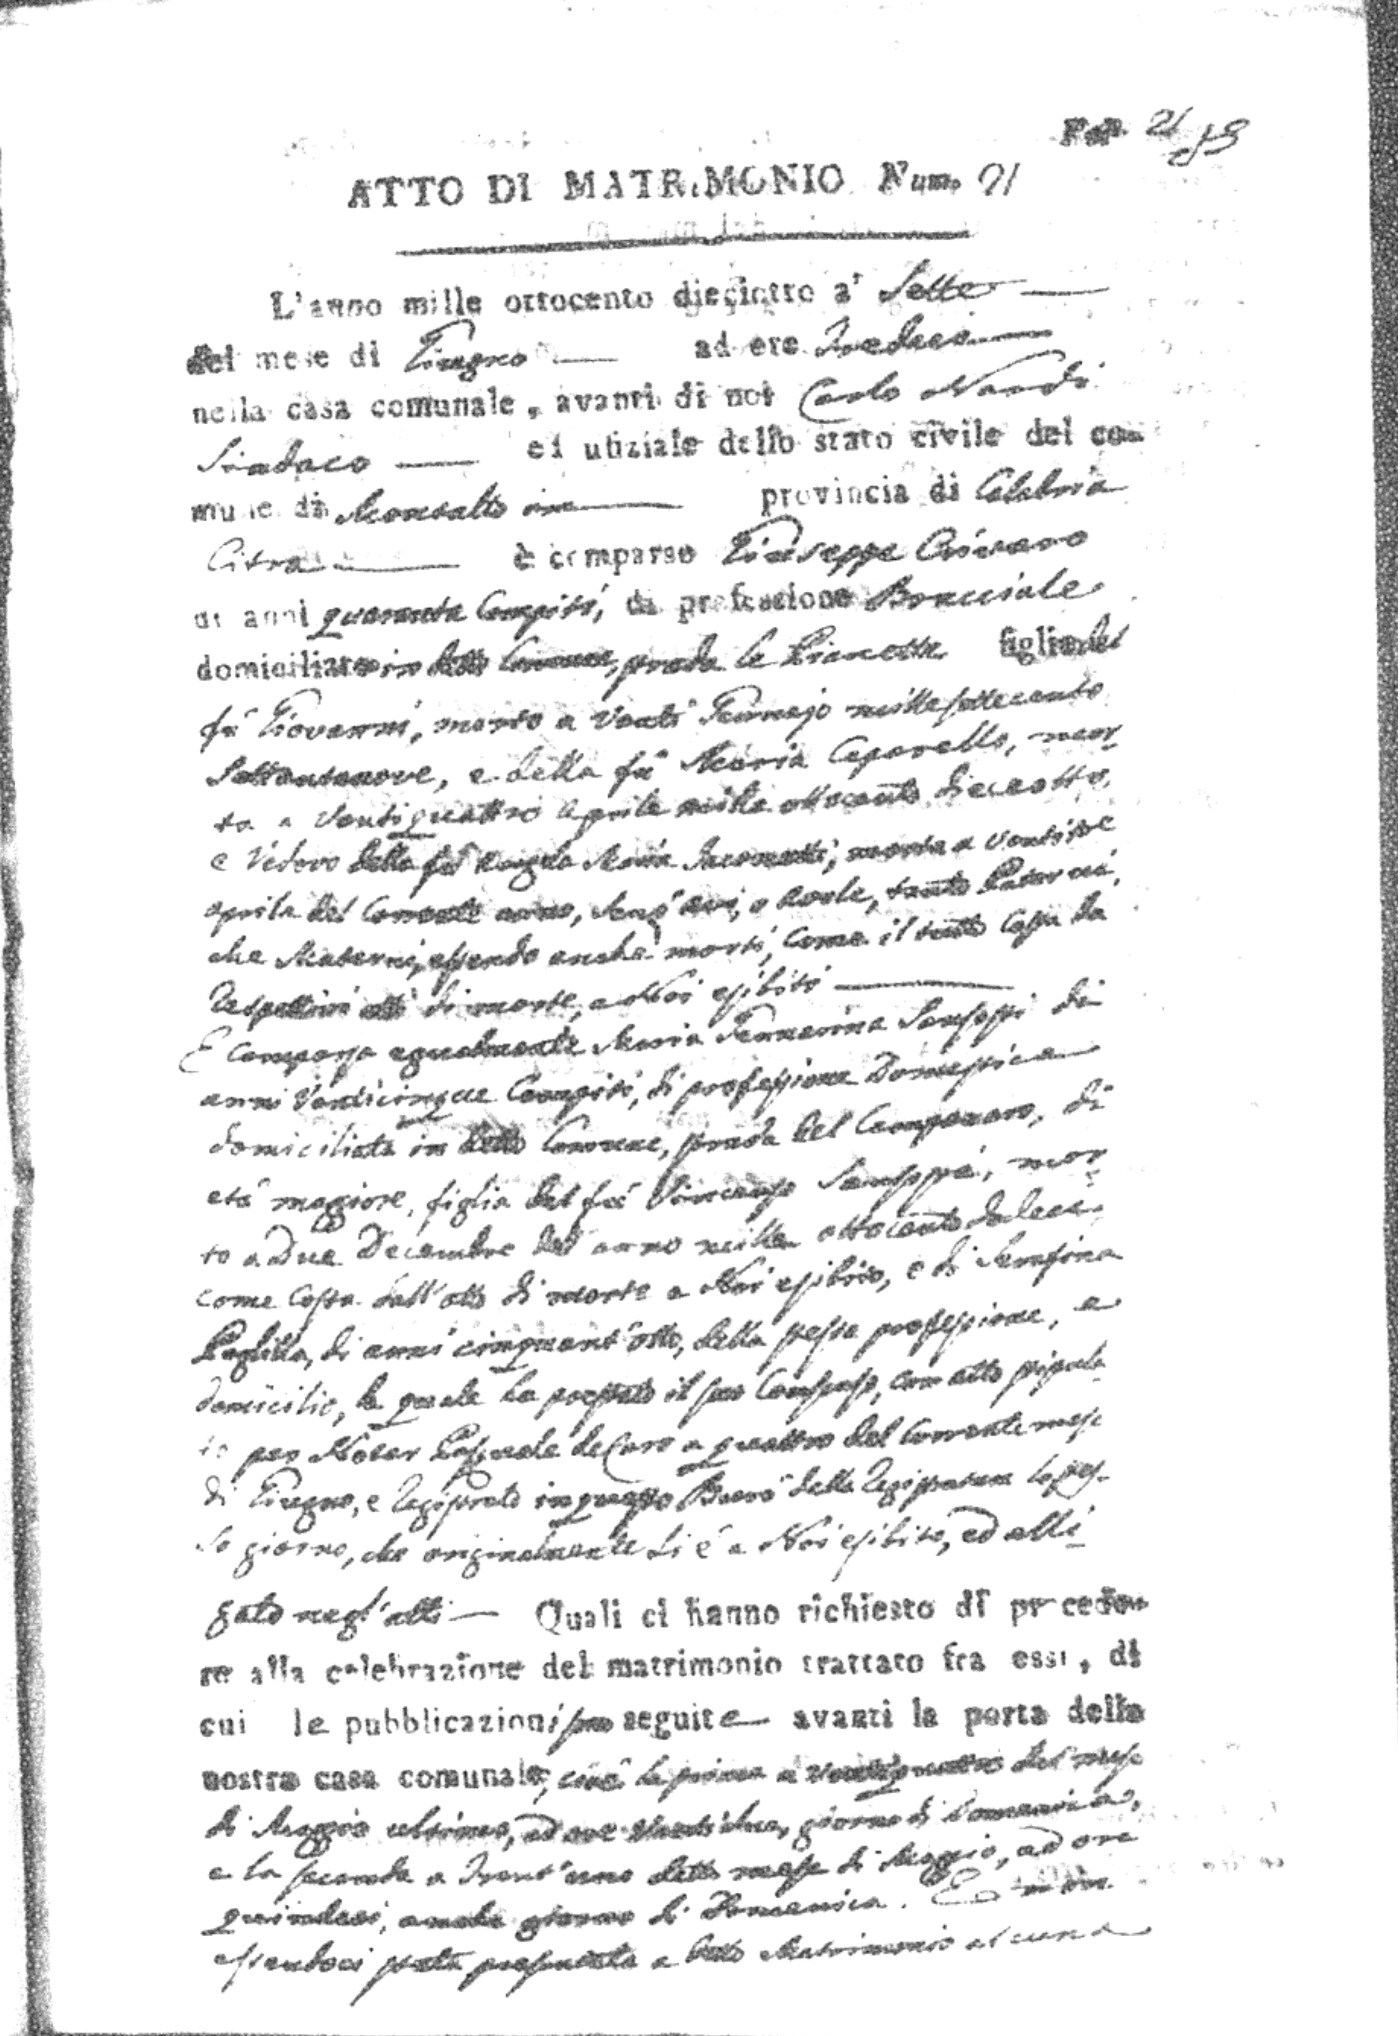 ATTO DI MATRIMONIO Num. 21
L'anno mille ottocento dieciotto a' Sette
del mese di Giugno ad ore Tredeci
nella casa comunale, avanti di noi Carlo Nardi
Sindaco ed ufiziale dello stato civile del co-
mune di Montalto in provincia di Calabria
Citra è comparso Giuseppe
di anni quaranta Compiti, di professione Bracciale
domiciliato in detto Comune, strada le Piancette figlio del
fù Giovanni, morto a Venti Gennajo mille settecento
Settantanove, e della fù Maria Caparello, mor-
ta a Ventiquattro Aprile mille ottocento dieceotto,
e Vedovo della fù Angela Maria morta a
aprile del Corrente anno, senz' avi, o avole, tanto Paterni,
che Materni, essendo anche morti, come il tutto Costa da
respettivi atti di morte, a Noi esibiti
È comparsa egualmente Maria Gennarina di
anni Venticinque Compiti, di professione Domestica
domiciliata in detto Comune, strada del Campanaro, di
età maggiore, figlia del fù Vincenzo mor-
to a Due Decembre dell' anno mille ottocento dodece,
come Costa dall' atto di morte a Noi esibito, e di Serafina
di anni cinquant'otto, della stessa professione, e
domicilio, la quale ha prestato il suo Consenso, con atto stipula-
to per Notar Pasquale de Caro a quattro del Corrente mese
di Giugno, e registrato in questo Burò della registratura lo stes-
so giorno, che originalmente si è a Noi esibito, ed alli-
gato negl' atti Quali ci hanno richiesto di procede-
re alla celebrazione del matrimonio trattato fra essi, di
cui le pubblicazioni sono seguite avanti la porta della
nostra casa comunale, cioè la prima a Ventiquattro del mese
di Maggio ultimo, ad ore Ventidue, giorno di Domenica,
e la seconda a Trent'uno detto mese di Maggio, ad ore
quindeci, anche giorno di Domenica. E non
essendoci stata presentata a detto Matrimonio alcuna